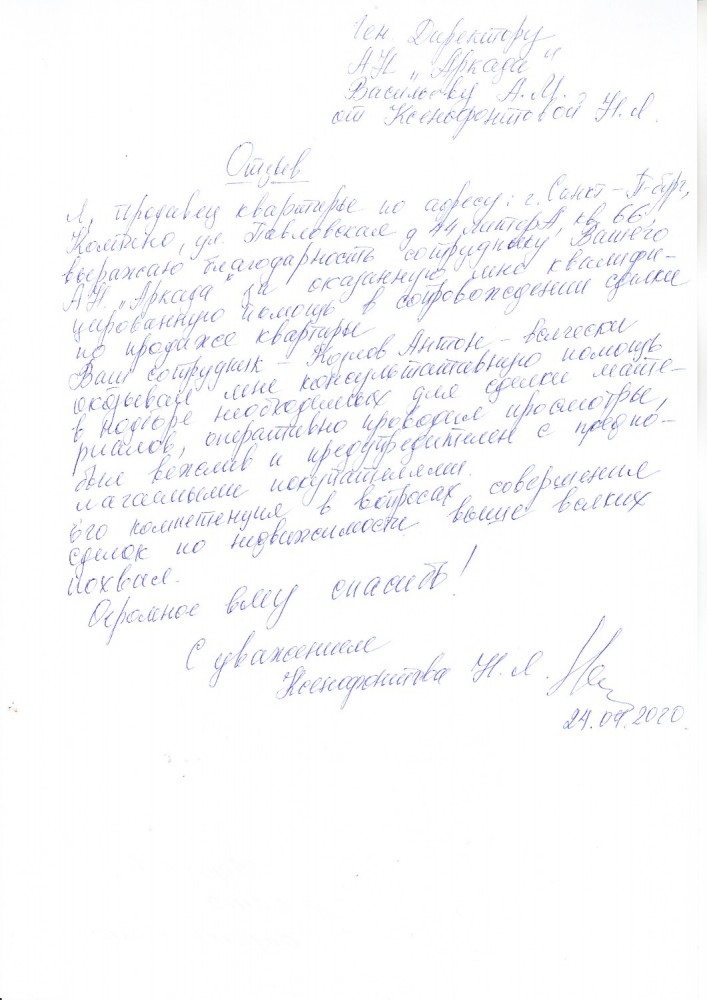 Ген. Директору
АН „Аркада"
Васильеву А.М.
от Ксенофонтовой Н.Л.
Отзыв
Я, продавец квартиры по адресу: г. Санкт-П-бург,
Колпино, ул. Павловская д 44 литер А, кв 66,
выражаю благодарность сотруднику Вашего
АН „Аркада" за оказанную мне квалифи-
цированную помощь в сопровождении сделки
по продаже квартиры
Ваш сотрудник - Козлов Антон - всячески
оказывал мне консультативную помощь
в подборе необходимых для сделки мате-
риалов, оперативно проводил просмотры,
был вежлив и предупредителен с предпо-
лагаемыми покупателями.
Его компетенция в вопросах совершения
сделок по недвижимости выше всяких
похвал.
Огромное ему спасибо!
С уважением
Ксенофонтова Н.Л.
24.09.2020